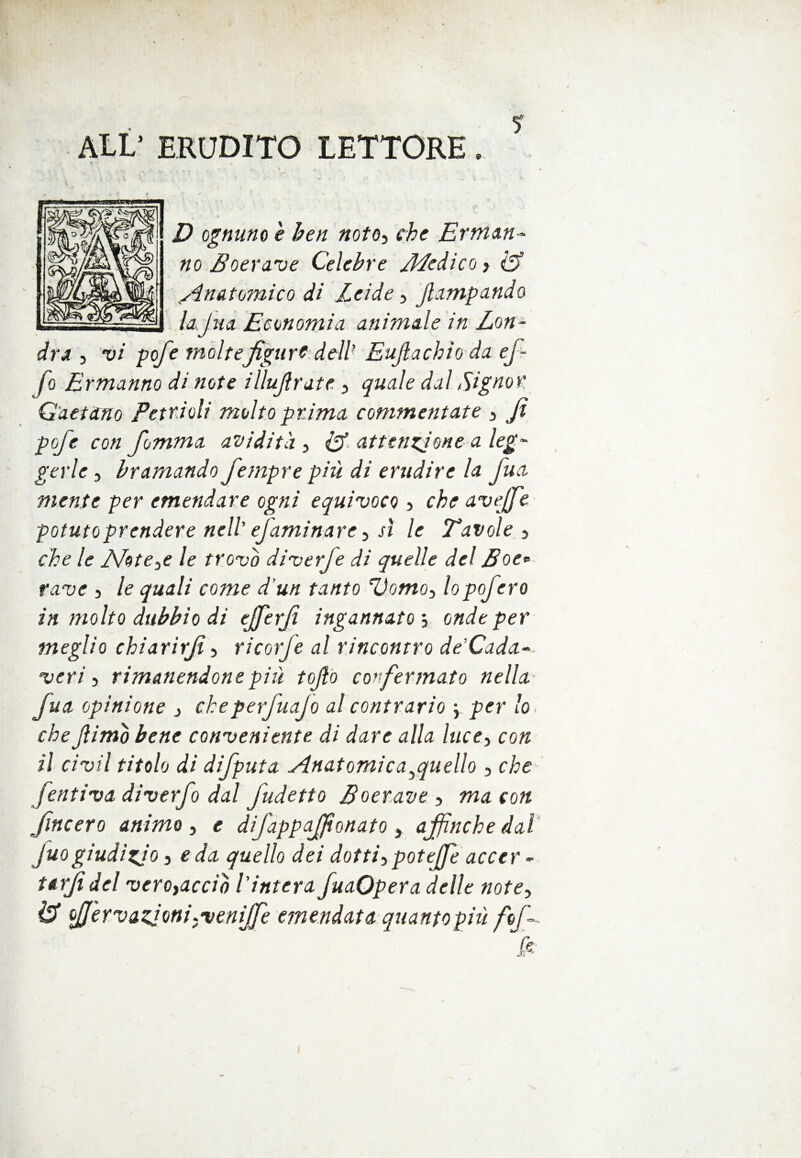 5
ALL' ERUDITO LETTORE.
AD ognuno è ben noto, che Erman-
no Boerave Celebre Medico, &
Anatomico di Leide, ſtampando
la ſua Economia animale in Lon-
dra, vi poſe molte figure dell' Euſtachio da eſ-
ſo Ermanno di note illuſtrate, quale dal Signor
Gaetano Petrioli molto prima commentate, ſi
poſe con ſomma avidità, & attenzione a leg-
gerle, bramando ſempre più di erudire la ſua
mente per emendare ogni equivoco, che aveſſe
potuto prendere nell' eſaminare, sì le Tavole,
che le Note, e le trovò diverſe di quelle del Boe-
rave, le quali come d'un tanto Vomo, lo poſero
in molto dubbio di eſſerſi ingannato; onde per
meglio chiarirſi, ricorſe al rincontro de' Cada-
veri, rimanendone più toſto confermato nella
ſua opinione, che perſuaſo al contrario; per lo
che ſtimò bene conveniente di dare alla luce, con
il civil titolo di diſputa Anatomica, quello, che
ſentiva diverſo dal ſudetto Boerave, ma con
ſincero animo, e diſappaſſionato, affinche dal
ſuo giudizio, e da quello dei dotti, poteſſe accer-
tarſi del vero, acciò l'intera ſua Opera delle note,
& oſſervazioni, veniſſe emendata quanto più foſ-
ſe